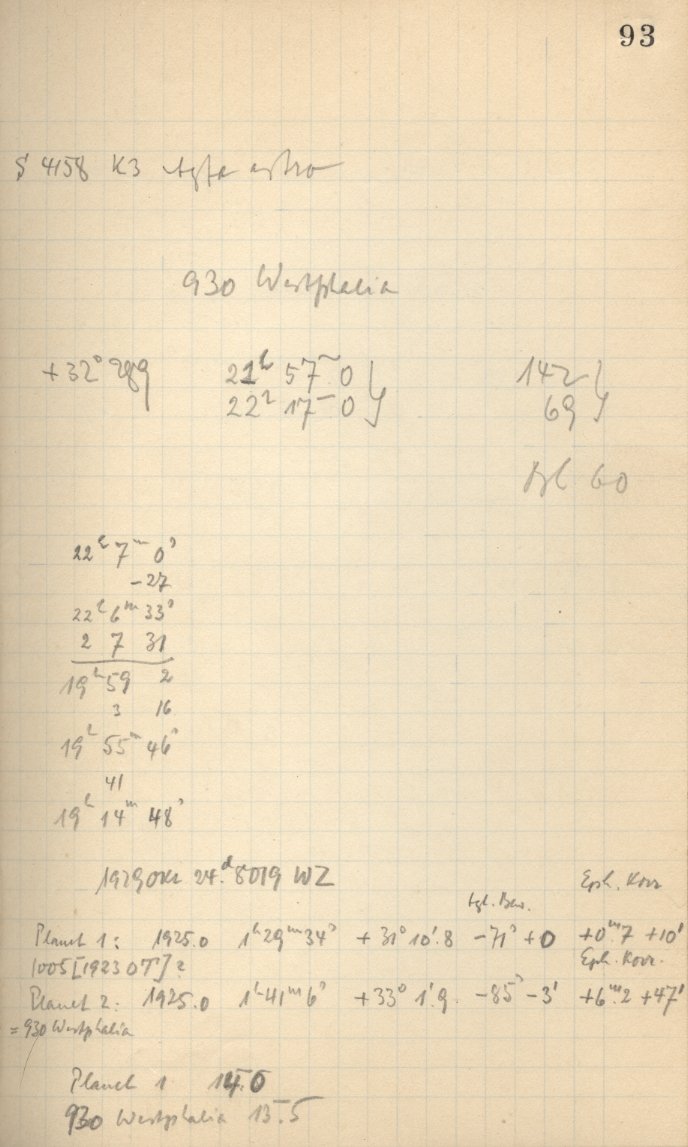 93
S 4158 K3 Agfa astro
930 Westphalia
+32° 289 21h 57m 0 142
22h 17m 0 69
Bl 60
22h 7m 0s
-27
22h 6m 33s
2 7 31
19h 59 2
3 16
19h 55m 46s
41
19h 14m 48s
1929 Okt 24.d8019 WZ
Eph. Korr
tgl. Bew.
Planet 1: 1925.0 1h 29m 34s +31° 10'.8 -71s +0 +0m.7 +10'
1005 [1923 OT]? Eph. Korr.
Planet 2: 1925.0 1h 41m 6s +33° 1'.9 -85s -3' +6m.2 +47'
= 930 Westphalia
Planet 1 14.0
930 Westphalia 13.5